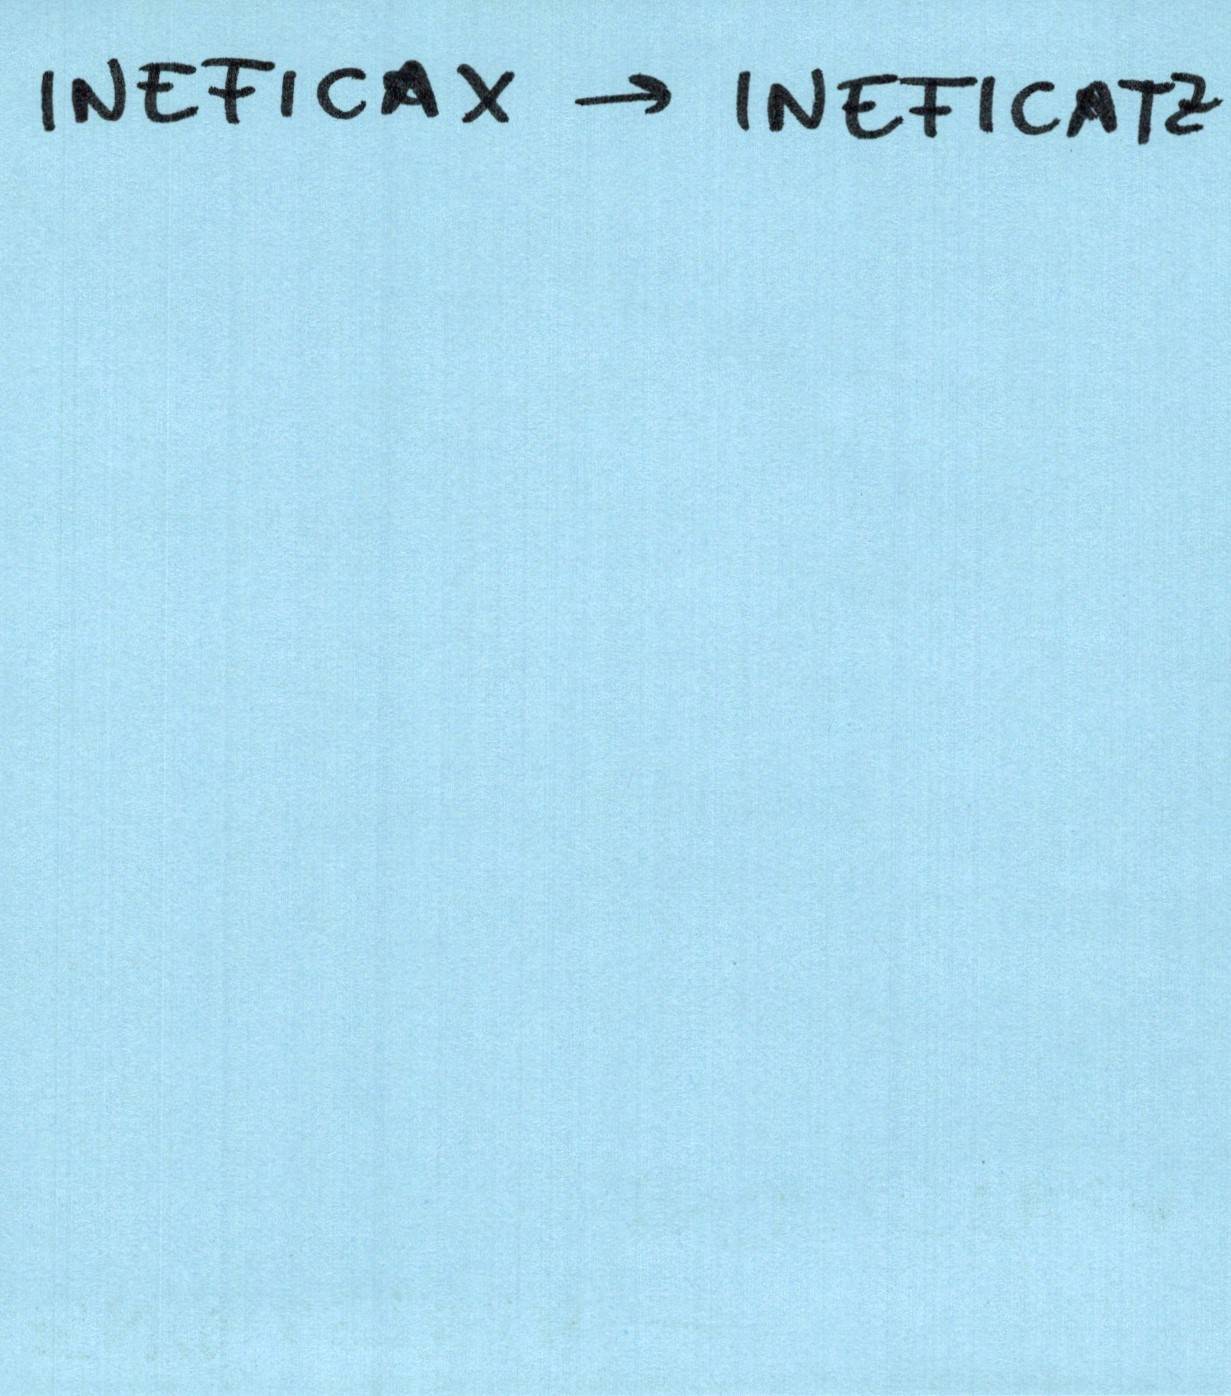 INEFICAX → INEFICATZ